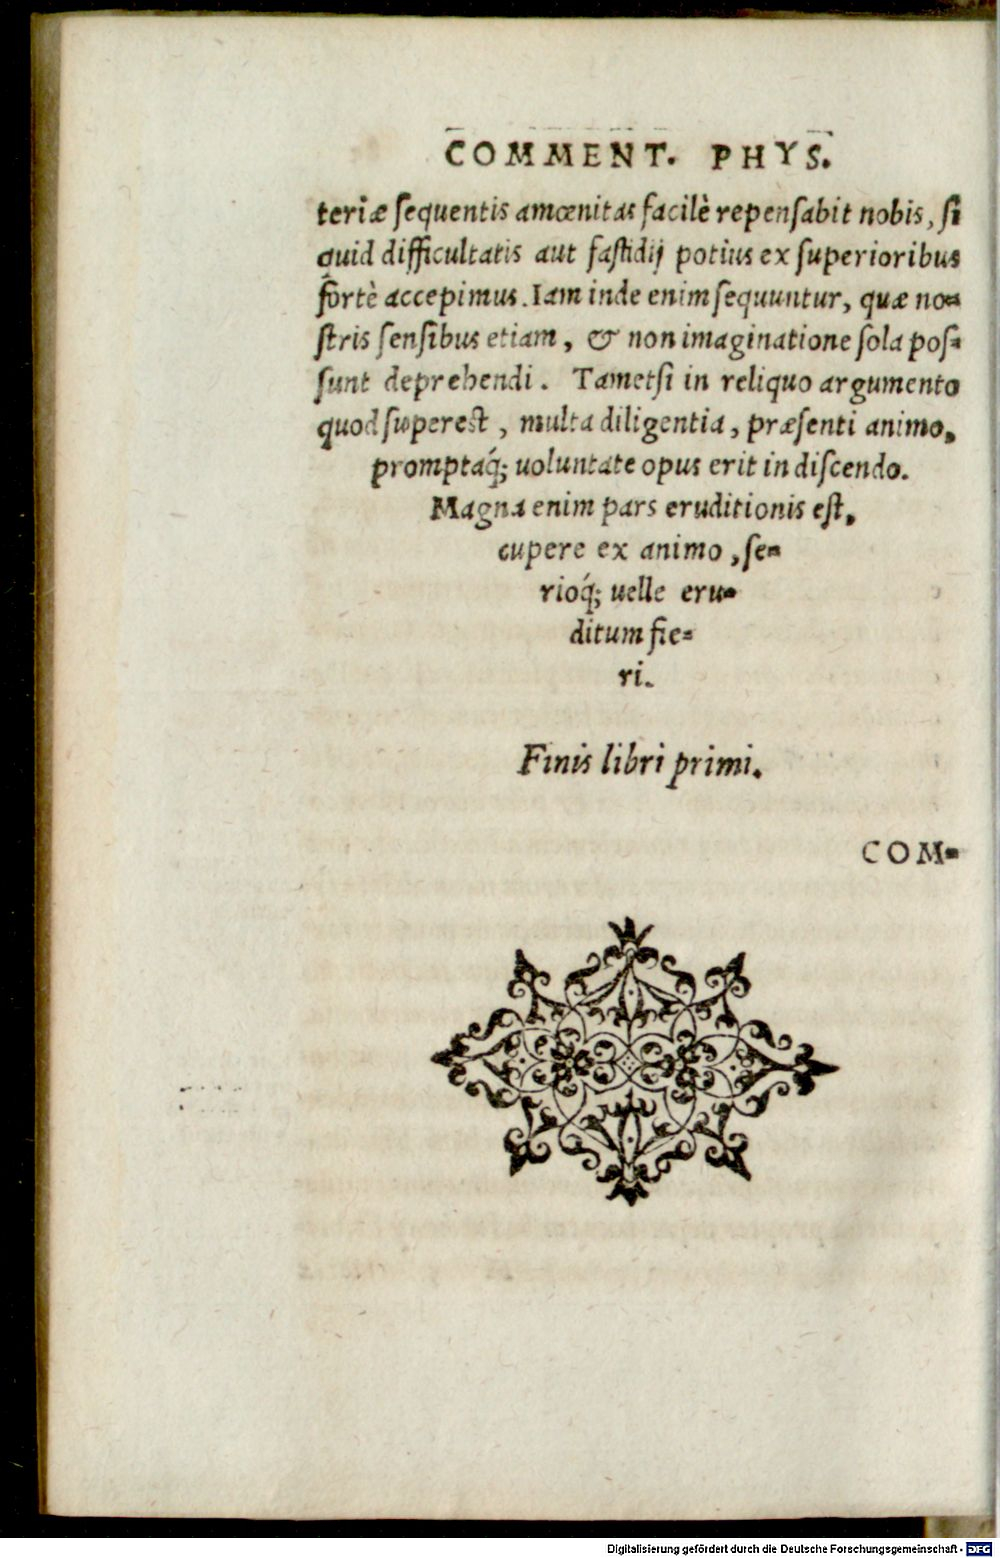 COMMENT. PHYS.
teriæ ſequentis amœnitas facilè repenſabit nobis, ſi
quid difficultatis aut faſtidij potius ex ſuperioribus
fortè accepimus. Iam inde enim ſequuntur, quæ no-
ſtris ſenſibus etiam, & non imaginatione ſola poſ-
ſunt deprehendi. Tametſi in reliquo argumento
quod ſupereſt, multa diligentia, præſenti animo,
promptaq́; uoluntate opus erit in diſcendo.
Magna enim pars eruditionis eſt,
cupere ex animo, ſe-
rioq́; uelle eru-
ditum fie-
ri.
Finis libri primi.
COM-
Digitalisierung gefördert durch die Deutsche Forschungsgemeinschaft - DFG